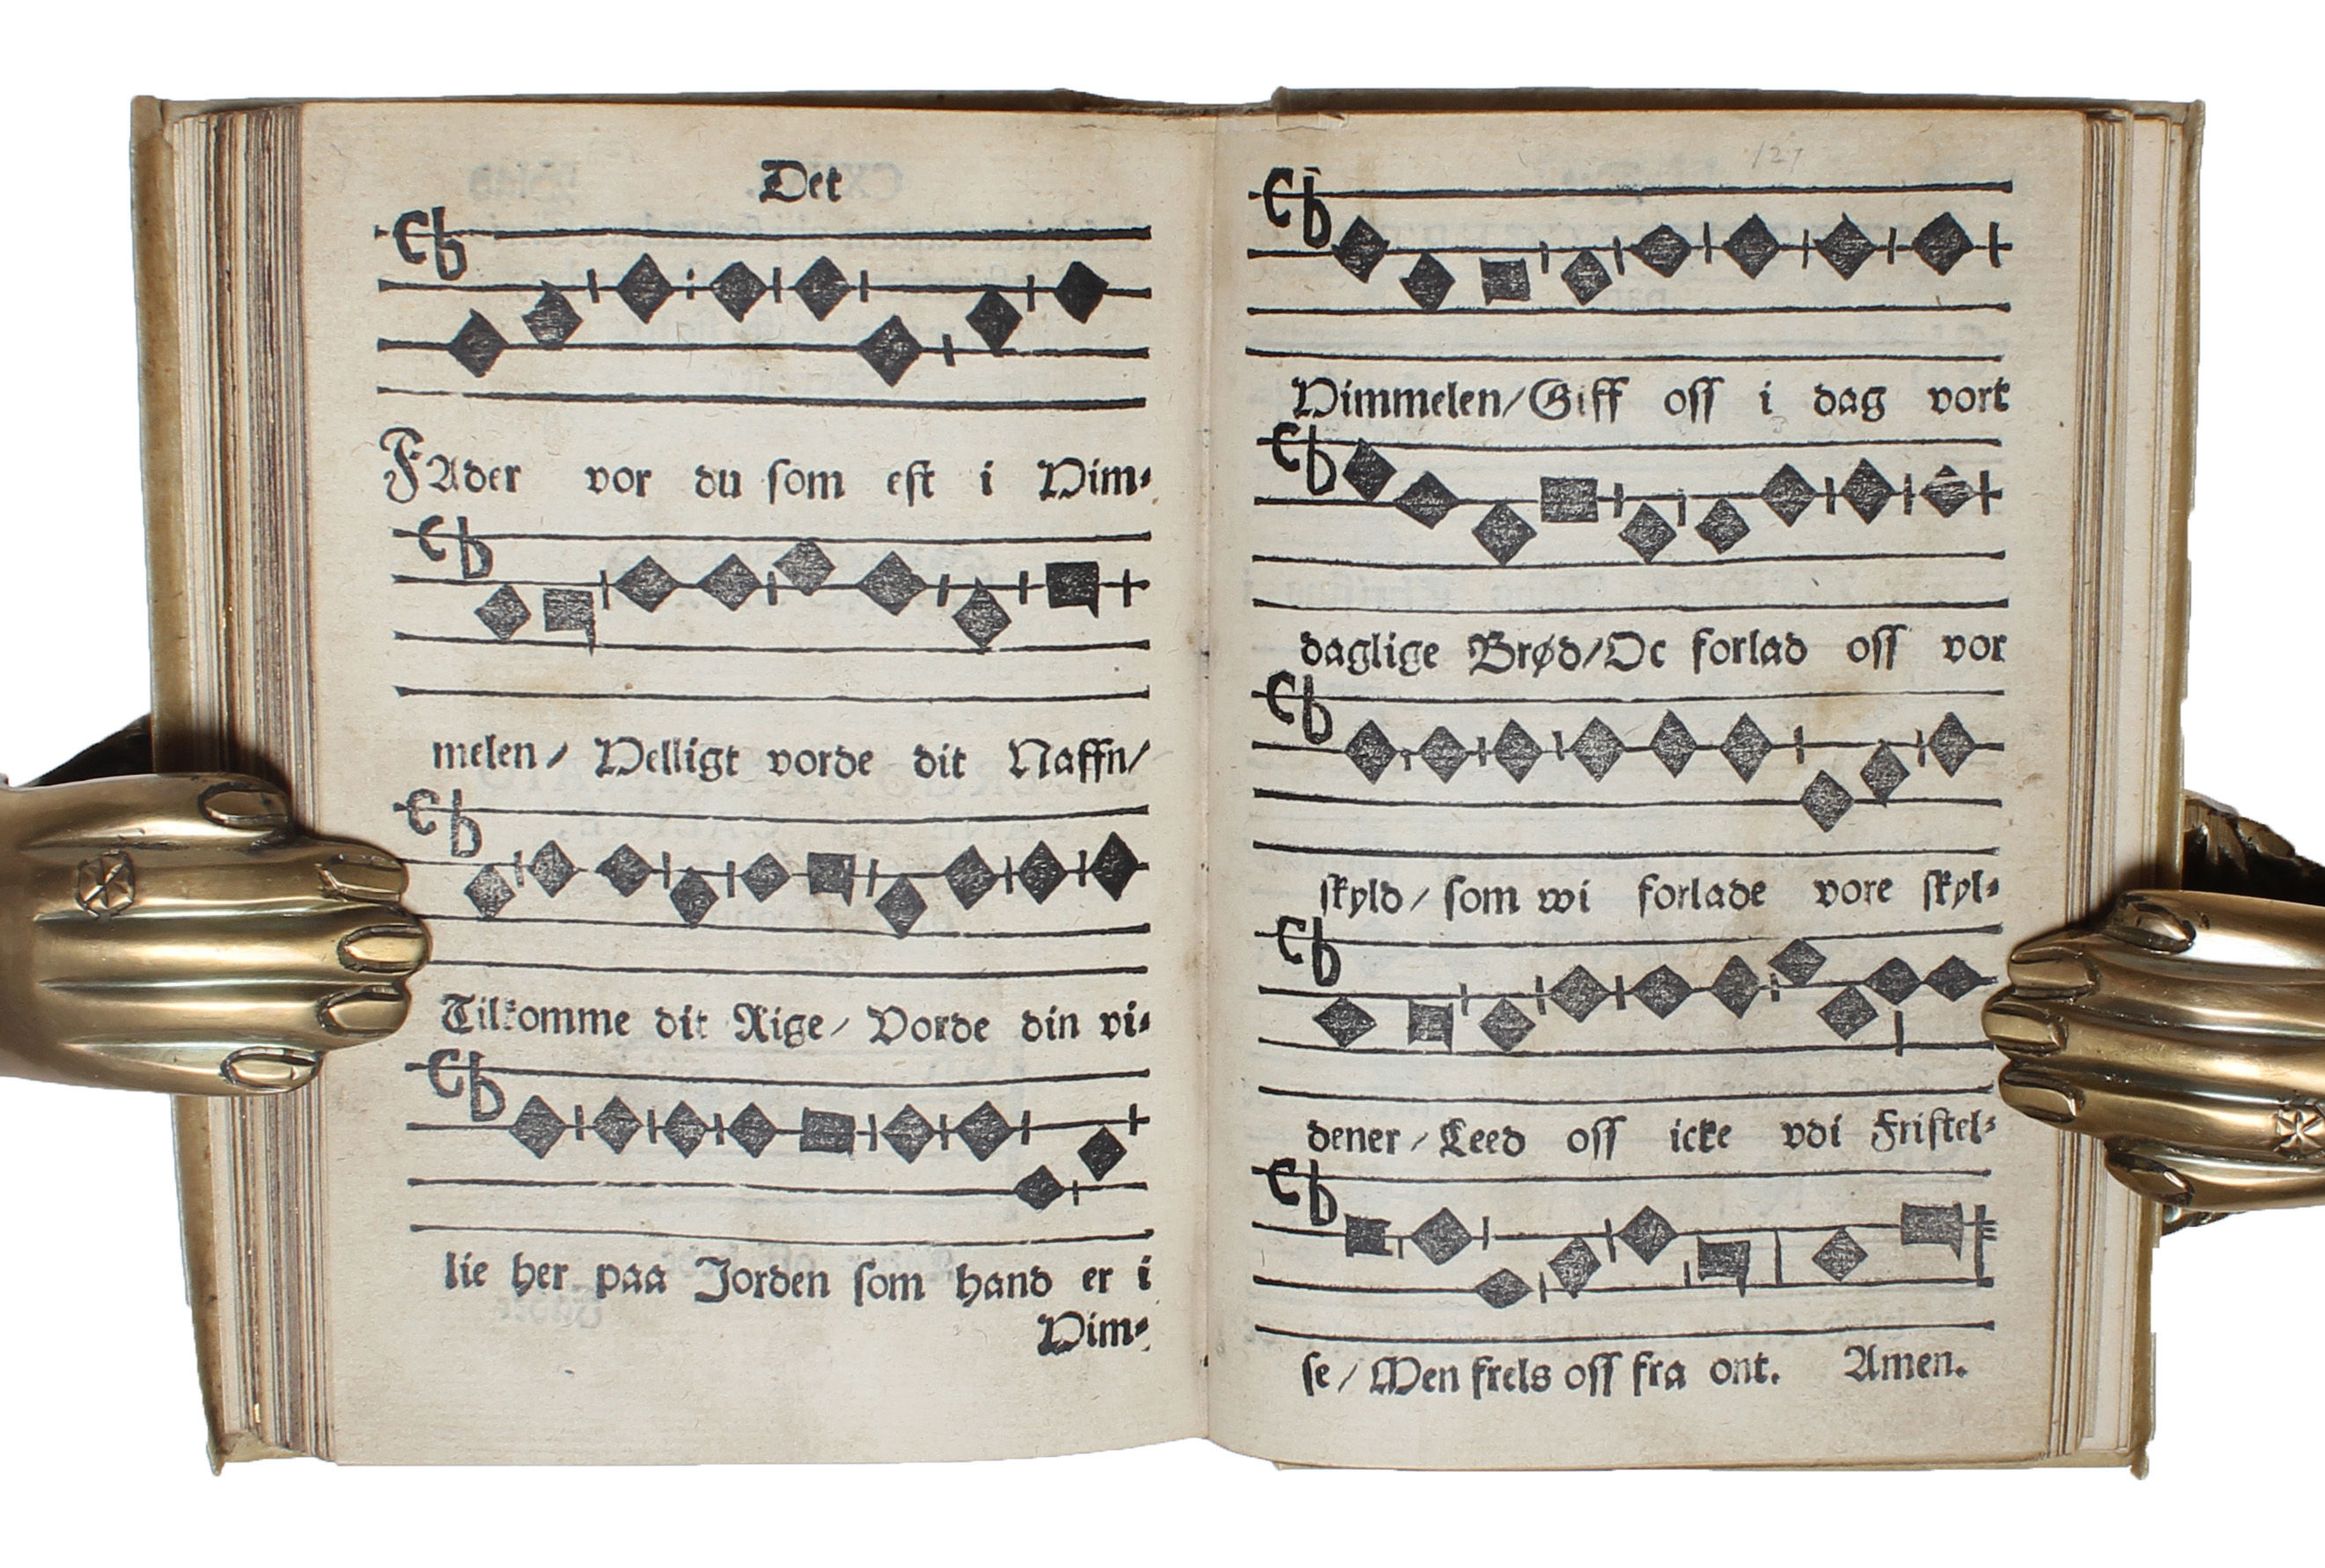 Det
FAder vor du som est i Him⸗
melen/ Helligt vorde dit Naffn/
Tilkomme dit Rige/ Vorde din vi⸗
lie her paa Jorden som hand er i
Him⸗
127
Himmelen/Giff oss i dag vort
daglige Brød/Oc forlad oss vor
skyld/ som wi forlade vore skyl⸗
dener/Leed oss icke vdi Fristel⸗
se/Men frels oss fra ont. Amen.